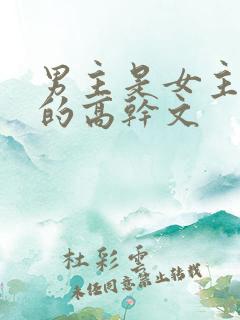 男主是女主
的高幹文
杜彩雲
未经同意禁止转载